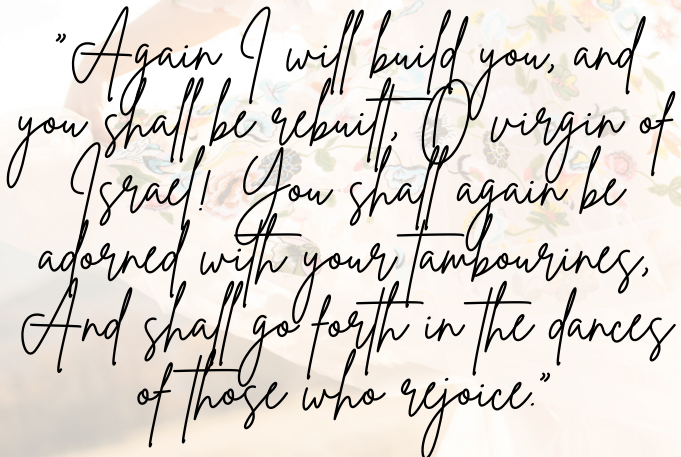 "Again I will build you, and
you shall be rebuilt, O virgin of
Israel! You shall again be
adorned with your tambourines,
And shall go forth in the dances
of those who rejoice."